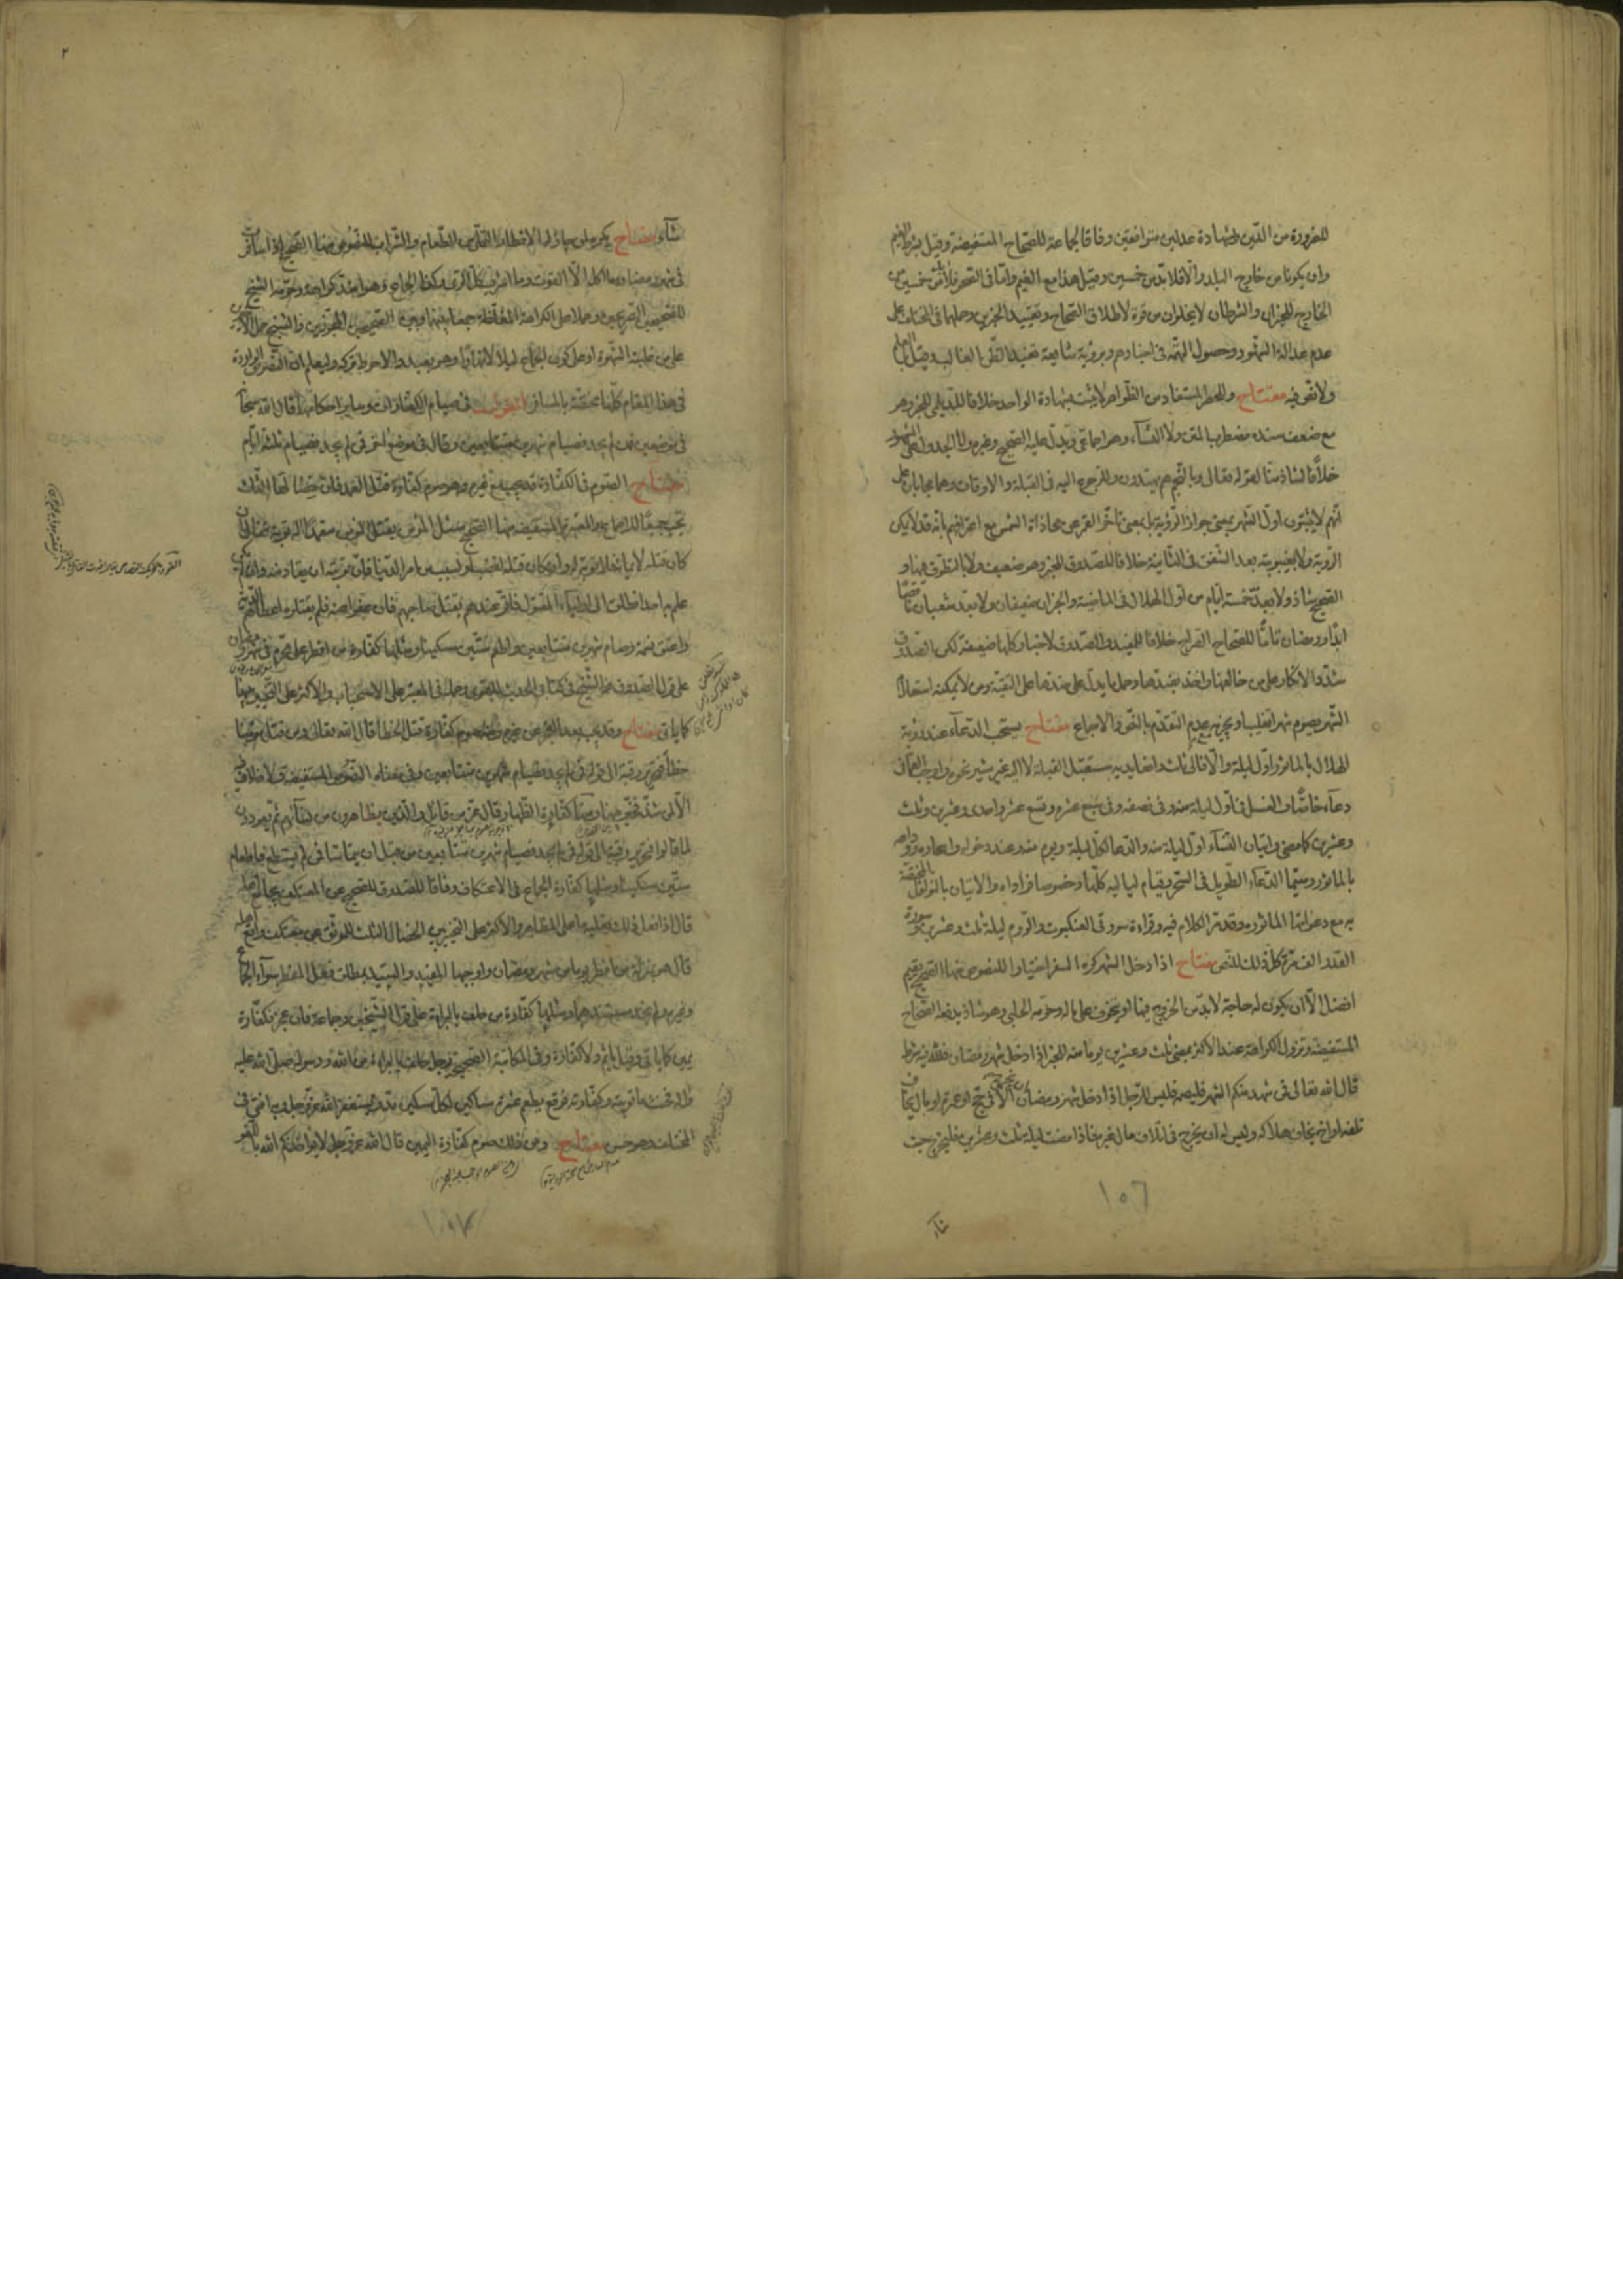 للضرورة من الدين وشهادة عدلين متوافقين وفاقا لجماعة للصحاح المستفيضة وقيل بشرط الغيم
وان يكونا من خارج البلد والا فلابد من خمسين وقيل هذا مع الغيم واما في الصحو فلا من خمسين من
الخارج للخبران والشرطان لا يخلوان من قوة لاطلاق الصحاح وتقييد الخبرين وحملهما في المختلف على
عدم عدالة الشهود وحصول التهمة في اخبارهم وبرؤية شايعة تفيد الظن الغالب وقيل بل العلم
ولا نص فيه مفتاح والحصر المستفاد من الظواهر لا يثبت بشهادة الواحد خلافا للديلمي للخبر وهو
مع ضعف سنده مضطرب المتن ولا النساء وهو اجماعي ويدل عليه الصحيح وغيره ولا الجدول
خلافا لشاذ منا لقوله تعالى وبالنجم هم يهتدون وللرجوع اليه في القبلة والاوقات وهما يجابان
انهم لا يثبتون اول الشهر بمعنى جواز الرؤية بل بمعنى تأخر القمر عن محاذاة الشمس مع اعترافهم بانه قد لا يمكن
الرؤية ولا بغيبوبته بعد الشفق في الثانية خلافا للصدوق للخبر وهو ضعيف ولا بالتطوق
الصحيح شاذ ولا بعد خمسة ايام من اول الهلال في الماضية والخبران ضعيفان ولا بعد شعبان ناقصا
ابدا ورمضان تاما للصحاح الصراح خلافا للمفيد والصدوق لاخبار كلها ضعيفة لكن الصدوق
شدد الانكار على من خالفها واخذ بضدها وحمل ما يدل على ضدها على التقية ومن لا يمكنه استعلام
الشهر يصوم شهرا تغليبا ويجزيه مع عدم التقدم بالنص والاجماع مفتاح يستحب الدعاء عند رؤية
الهلال بالماثور اول ليلة والا فالى ثلث رافعا يديه مستقبل القبلة لا اليه غير مشير نحوه واوجب العماني
دعاء خاصا والغسل في اول ليلة منه وفي نصفه وفي سبع عشرة وتسع عشرة واحدى وعشرين وثلث
وعشرين كما مضى واتيان النساء اول ليلة منه والدعاء كل ليلة ويوم منه وعند دخوله واسحاره ووداعه
بالماثور وسيما الدعاء الطويل في السحر وقيام لياليه كلها وخصوصا فراداه والاتيان بالنوافل المختصة
به مع دعواتها الماثوره وقد مر الكلام فيه وقراءة سورتي العنكبوت والروم ليلة ثلث وعشرين وسورة
القدر الف مرة كل ذلك للنص مفتاح اذا دخل الشهر كره السفر اختيارا للنصوص منها الصحيح يقيم
افضل الا ان يكون له حاجة لابد من الخروج فيها او يتخوف على ماله وحرمه الحلبي وهو شاذ يدفعه الصحاح
المستفيضة وتزول الكراهة عند الاكثر بمضي ثلث وعشرين يوما منه للخبر اذا دخل شهر رمضان فلله فيه شرط
قال الله تعالى فمن شهد منكم الشهر فليصمه فليس للرجل اذا دخل شهر رمضان ان يخرج الا في حج او عمرة او مال يخاف
تلفه او اخ يخاف هلاكه وليس له ان يخرج في اتلاف مال غيره فاذا مضت ليلة ثلث وعشرين فليخرج حيث
شاء
١٥٦
٢
شاء مفتاح يكره لمن جاز له الافطار التملي من الطعام والشراب للنصوص منها الصحيح اذا سافرت
في شهر رمضان ما آكل الا القوت وما اشرب كل الري وكذا الجماع وهو اشد كراهة وحرمه الشيخ
للصحيحين الصريحين وحملا على الكراهة المغلظة جمعا بينهما وبين الصحيحين المجوزين والشيخ حمل الاخيرين
على من غلبته الشهوة او على كون الجماع ليلا لا نهارا وهو بعيد والاحوط تركه وليعلم ان النصوص الواردة
في هذا المقام كلها مختصة بالمسافر القول في صيام الكفارات وساير احكامها قال الله سبحانه
في موضعين فمن لم يجد فصيام شهرين متتابعين وقال في موضع اخر فمن لم يجد فصيام ثلثة ايام
مفتاح الصوم في الكفارة قد يجب مع غيره وهو صوم كفارة قتل العمد فان خصالها الثلث
تجب جميعا للاجماع وللمعتبرة المستفيضة منها الصحيح سئل المؤمن يقتل المؤمن متعمدا اله توبة فقال ان
كان قتله لايمانه فلا توبة له وان كان قتله لغضب او لسبب من امر الدنيا فان توبته ان يقاد منه وان لم يكن
علم به احد انطلق الى اولياء المقتول فاقر عندهم بقتل صاحبهم فان عفوا عنه فلم يقتلوه اعطاهم الدية
واعتق نسمة وصام شهرين متتابعين واطعم ستين مسكينا ومثلها كفارة من افطر على محرم في شهر رمضان
على قول الصدوق والشيخ في كتابي الحديث للقوي وحمله في المعتبر على الاستحباب والاكثر على التخيير فيها
كما ياتي مفتاح وقد يجب بعد العجز عن غيره وهو صوم كفارة قتل الخطأ قال الله تعالى ومن قتل مؤمنا
خطأ فتحرير رقبة الى قوله فمن لم يجد فصيام شهرين متتابعين وفي معناه النصوص المستفيضة ولا خلاف فيه
الا لمن شذ فخير فيها ومنها كفارة الظهار قال عز من قائل والذين يظاهرون من نسائهم ثم يعودون
لما قالوا فتحرير رقبة الى قوله فمن لم يجد فصيام شهرين متتابعين من قبل ان يتماسا فمن لم يستطع فاطعام
ستين مسكينا ومثلها كفارة الجماع في الاعتكاف وفاقا للصدوق للصحيح عن المعتكف يجامع اهله
قال اذا فعل ذلك فعليه ما على المظاهر والاكثر على التخيير بين الخصال الثلث للموثق عن معتكف واقع اهله
قال هو بمنزلة من افطر يوما من شهر رمضان واوجبها المفيد والسيد بمطلق فعل المفطر سواء الجماع
وغيره ولم نجد مستندهما ومثلها كفارة من حلف بالبراءة على قول الشيخين وجماعة فان عجز فكفارة
يمين كما ياتي وقيل ياثم ولا كفارة وفي المكاتبة الصحيحة رجل حلف بالبراءة من الله ورسوله صلى الله عليه
واله فحنث ما توبته وكفارته فوقع يطعم عشرة مساكين لكل مسكين مد ويستغفر الله عز وجل وبه افتى في
المختلف وهو حسن مفتاح ومن ذلك صوم كفارة اليمين قال الله عز وجل لا يؤاخذكم الله باللغو
١٥٧